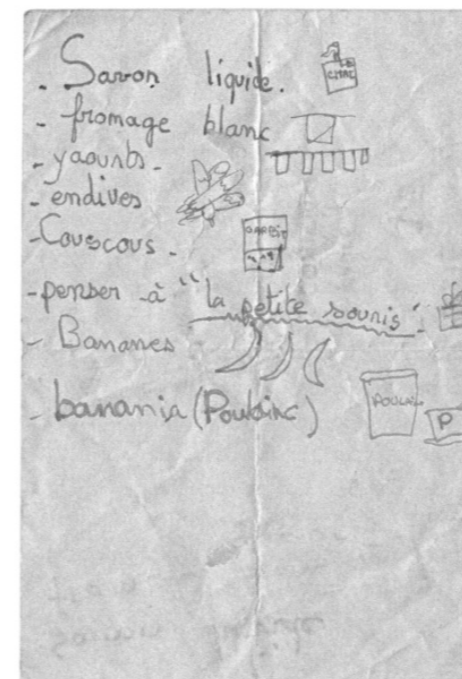 - Savon liquide.
- fromage blanc
- yaourts -
- endives
- Couscous -
- penser à "la petite souris".
- Bananes
- banania (Poulain)
POULAIN
P